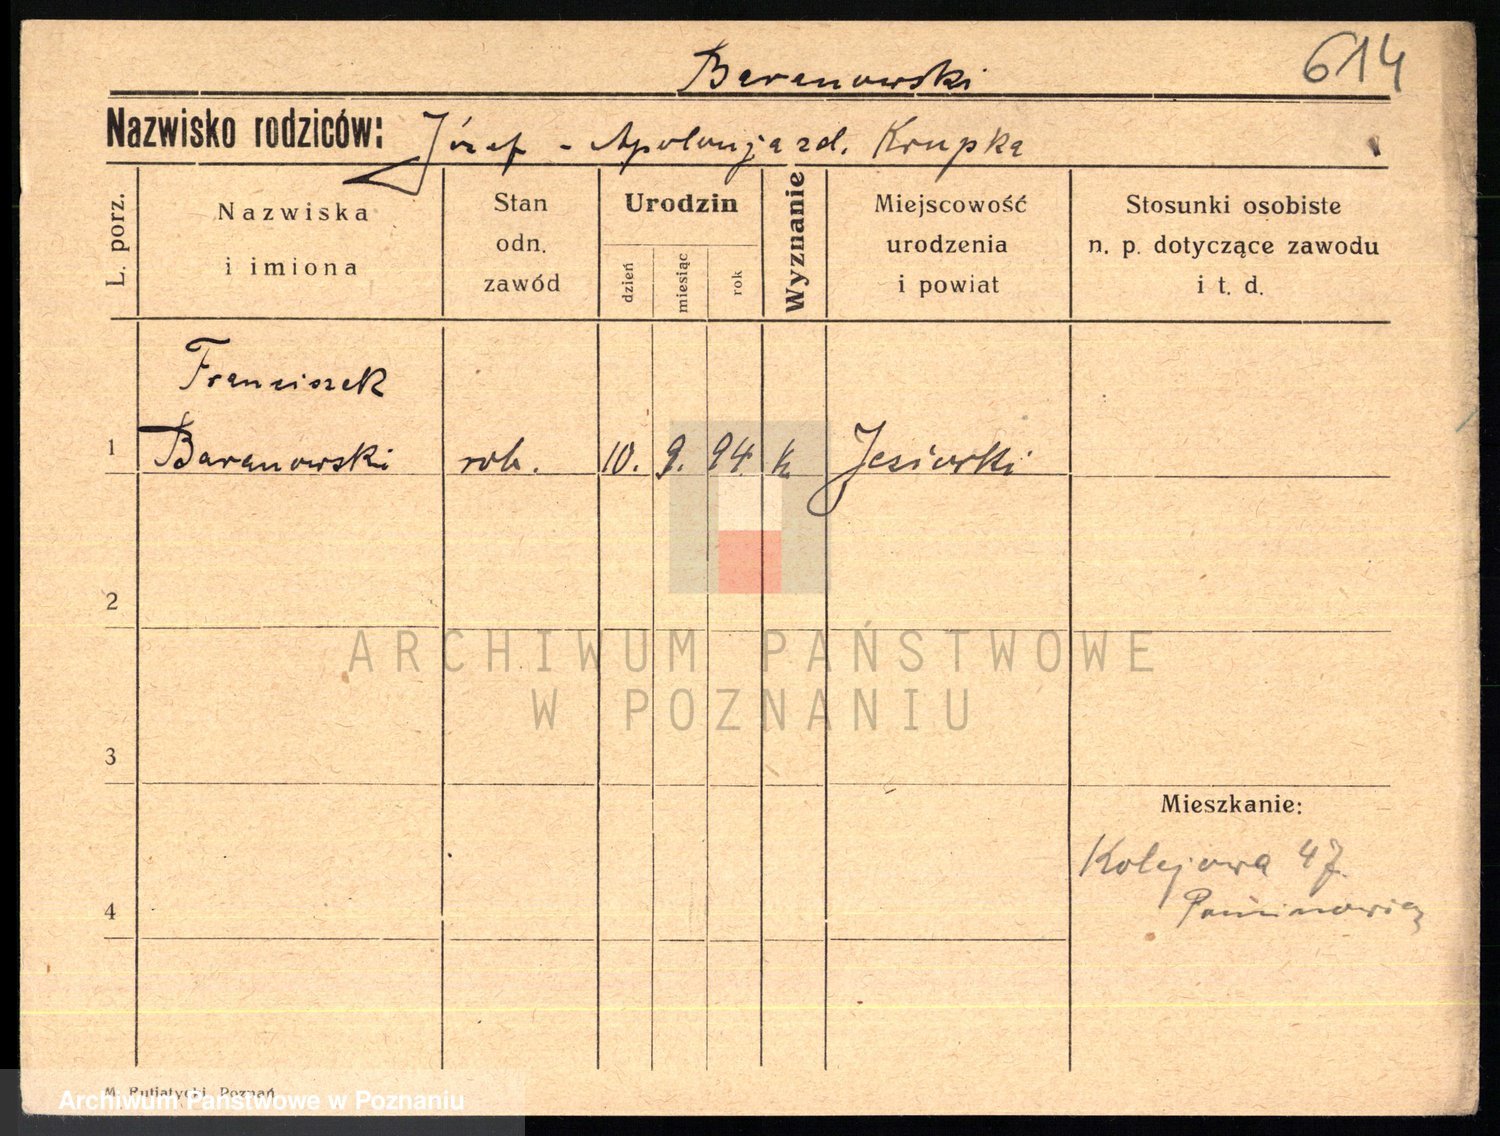 614
Baranowski
Nazwisko rodziców: Józef - Apolonja zd. Krupka
L. porz.
Nazwiska
i imiona
Stan
odn.
zawód
Urodzin
dzień
miesiąc
rok
Wyznanie
Miejscowość
urodzenia
i powiat
Stosunki osobiste
n. p. dotyczące zawodu
i t. d.
Franciszek
1 Baranowski rob. 10. 9. 94 k Jeziorki
2
ARCHIWUM PAŃSTWOWE
W POZNANIU
3
Mieszkanie:
Kolejowa 47
4
M. Putiatycki, Poznań
Archiwum Państwowe w Poznaniu